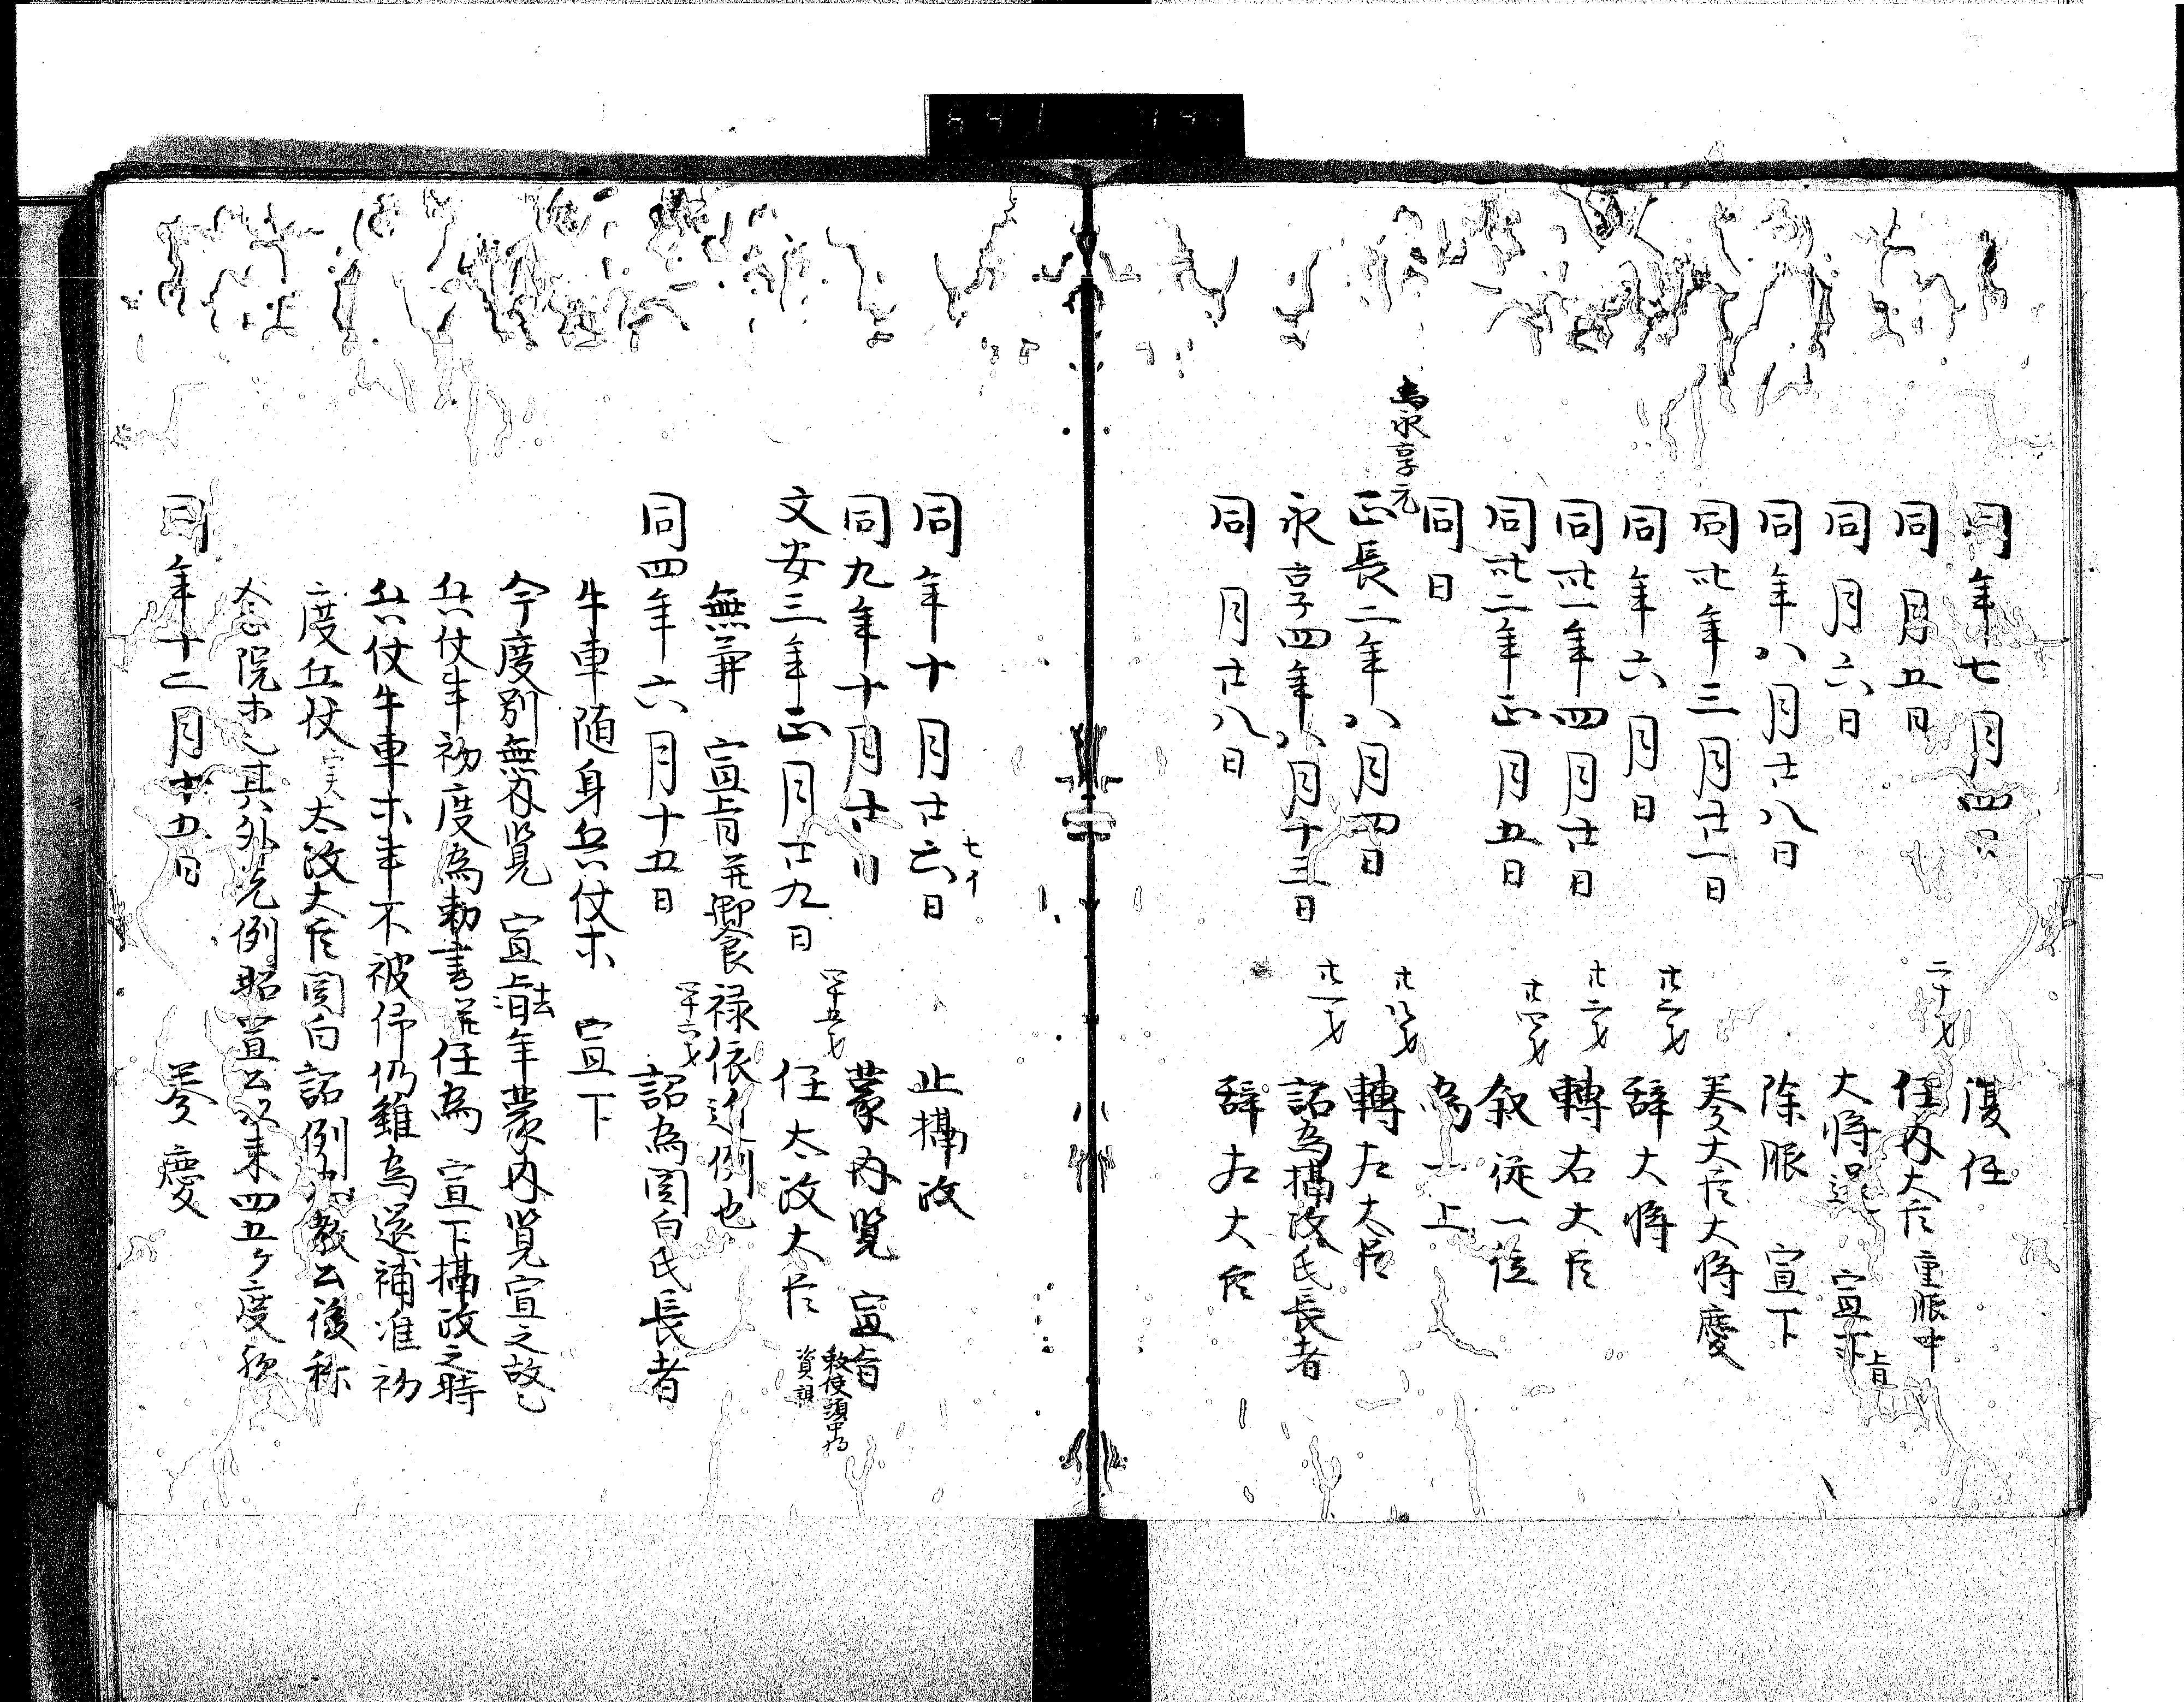 同年七月四日 復任
同月五日 二十才 任内大臣 重服中
同月六日 大将還 宣下 旨
同年八月廿八日 除服 宣下
同卅年三月廿一日 奏大臣大将慶
同年六月日 廿二才 辞大将
同卅一年四月廿日 廿三才 轉右大臣
同卅二年正月五日 廿四才 叙従一位
同日 為一上
為永享元
正長二年八月四日 廿八才 轉左大臣
永享四年八月十三日 卅一才 詔為攝政氏長者
同月廿八日 辞左大臣
同年十月廿六日 七イ 止攝政
同九年十月廿日 蒙内覧 宣旨
文安三年正月廿九日 四十五才 任太政大臣 敕使頭中将資親
無兼 宣旨并饗食禄依近例也
同四年六月十五日 四十六才 詔為関白氏長者
牛車随身兵仗木 宣下
今度別無内覧 宣旨去年蒙内覧宣之故也
兵仗牛初度為勅書并任為 宣下攝政之時
兵仗牛車木事不被仰仍雖為還補准初
度兵仗 太政大臣関白詔例 教公後称
念院木也其外先例昭宣公以来四五ケ度歟
同年十二月十五日 奏慶